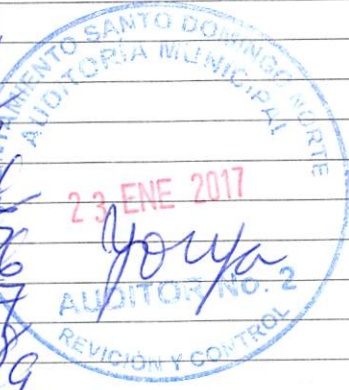 AYUNTAMIENTO SANTO DOMINGO NORTE
AUDITORÍA MUNICIPAL
23 ENE 2017
AUDITOR No. 2
REVICIÓN Y CONTROL
6
7
8
9